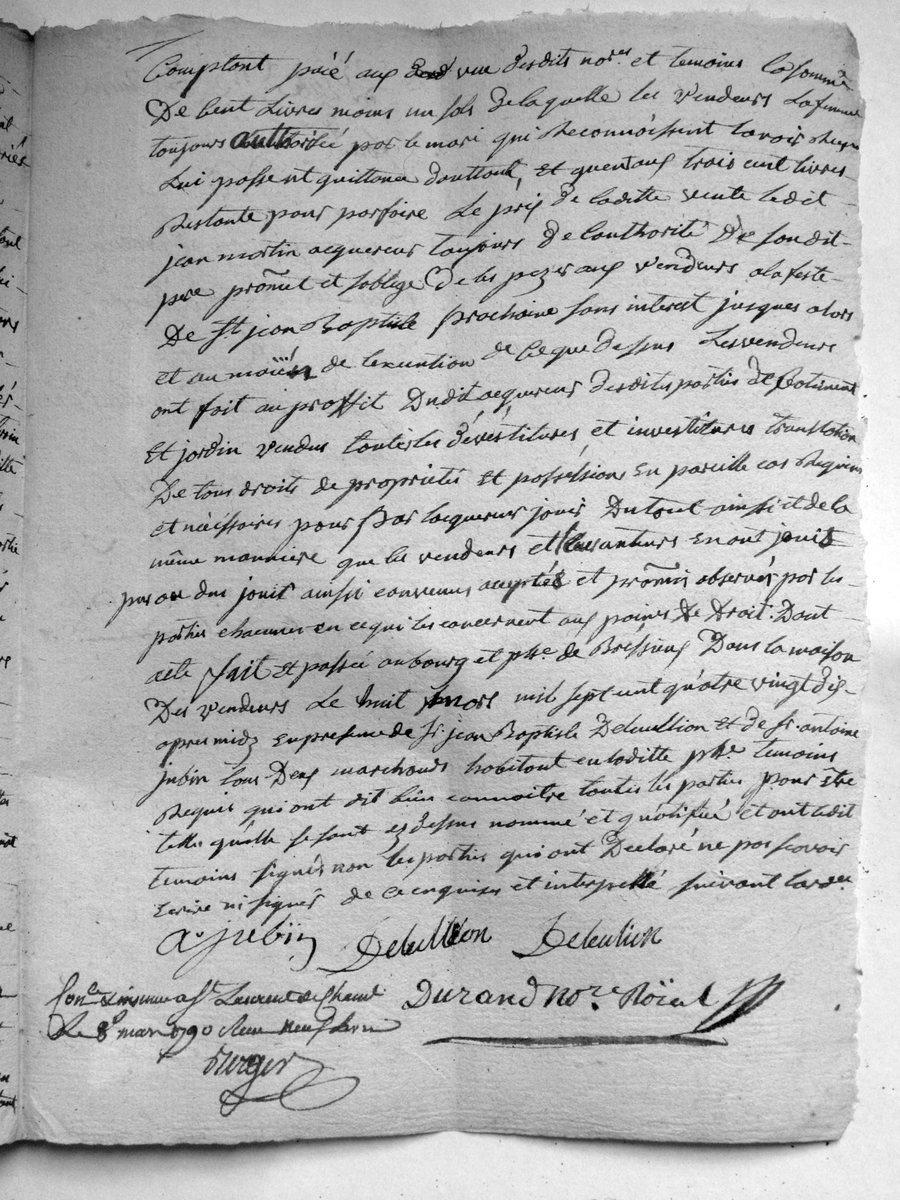 Comptant païé aux vue desdits nores et temoins la somme
De cent Livres moins un sols de laquelle les vendeurs La femme
toujours authorisée par le mari qui Reconnoissent lavoir Reçu
Lui passent quittance dauttant, et quent aux trois cent livres
Restante pour parfaire Le prix de laditte vente ledit
jean martin acquereur toujours de lauthorité De son dit
pere promet et soblige De les payer aux vendeurs a la feste
De st jean Baptiste prochaine sans interet jusques alors
et au moiien de lexecution de ce que dessus Les vendeurs
ont fait au proffit Dudit acquereur desdits parties de Batiment
Et jardin vendus toutes les dévéstitures et investitures translation
De tous droits de propriétés et posséssions En pareille cas Requises
et nécéssaires pour Par lacquereur jouir Du tout ainsi et de la
même manniere que les vendeurs et leurs auteurs En ont jouit
pu ou du jouir ainsi convenus acceptés et promis observés par les
parties chacunes en ce qui les concernent aux peines De Droit. Dont
acte fait et passée au bourg et psse. de Bressieux Dans la maison
Des vendeurs Le huit mars mil sept cent quatre vingt dix
apres midy En presence de sr. jean Baptiste Debullion et de sr. antoine
jubin tous Deux marchands habitant en laditte psse. temoins
Requis qui ont dit bien connoitre toutes les parties pour être
telle quelle se sont cy dessus nommé et qualifiée et ont ledit
temoins signés non les parties qui ont Declaré ne pas scavoir
Ecrire ni signés de ce enquises et interpellé suivant lorde.
a. jubin Debullion Debulion
Durand nore. Roïal
Conle. & insinué a St. Laurent de Chamt
Le 8. mars 1790 Recu neuf livres
Berger